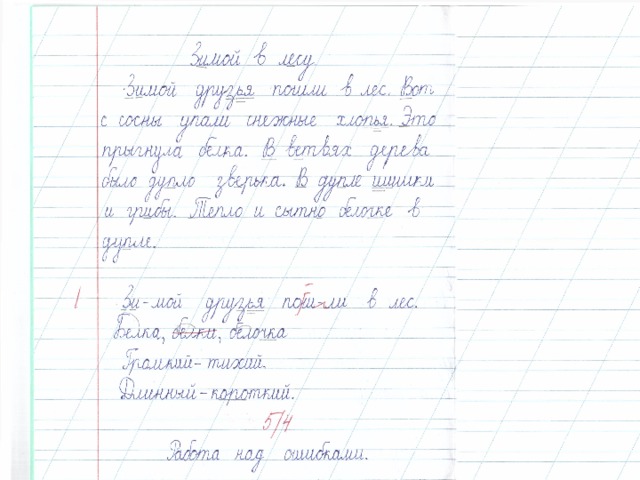 Зимой в лесу
Зимой друзья пошли в лес. Вот
с сосны упали снежные хлопья. Это
прыгнула белка. В ветвях дерева
было дупло зверька. В дупле шишки
и грибы. Тепло и сытно белочке в
дупле.
Зи-мой друзья пошли в лес.
Белка, белки, белочка
Громкий-тихий.
Длинный-короткий.
5/4
Работа над ошибками.